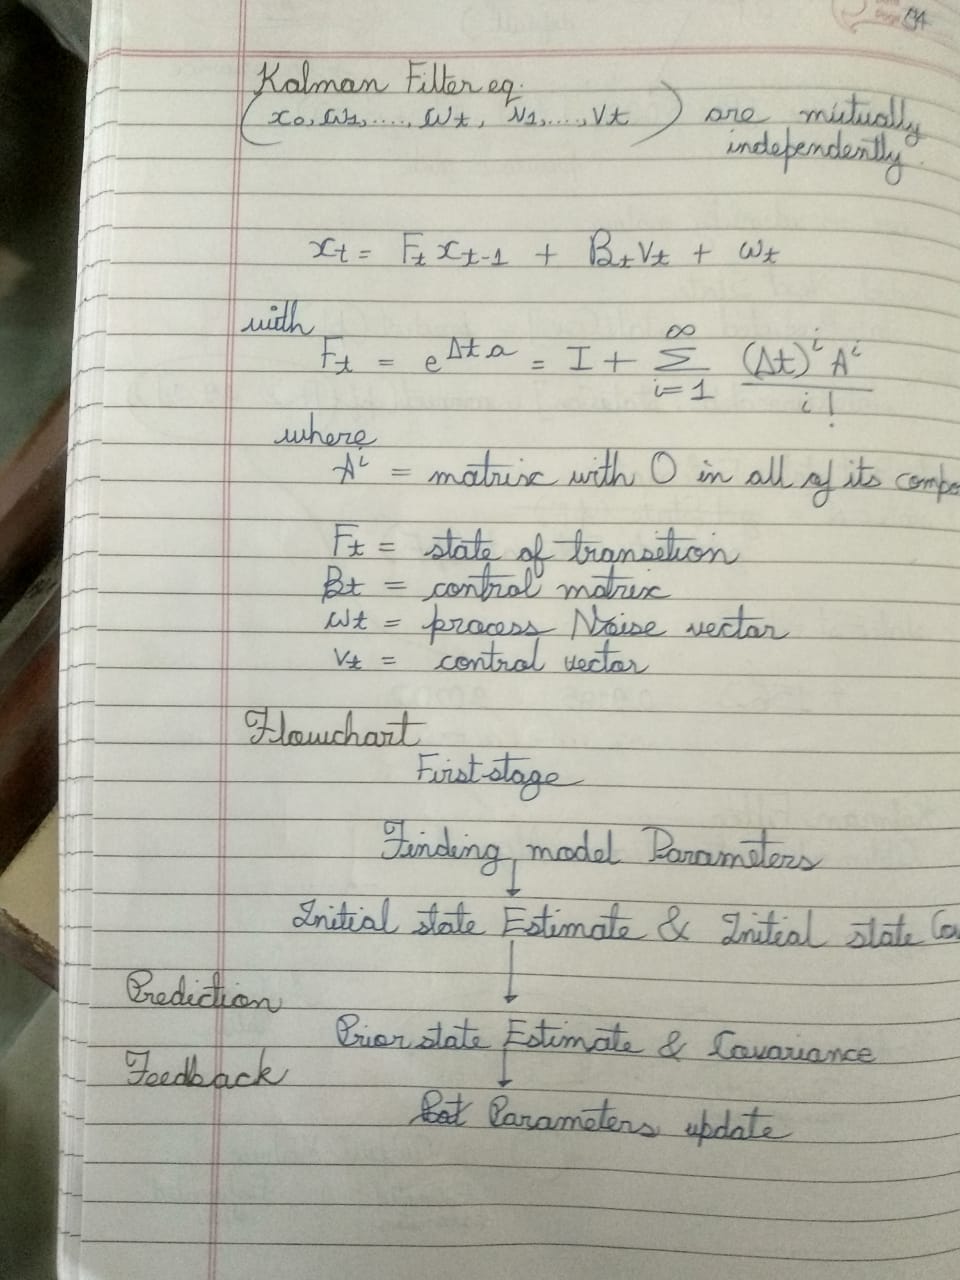 84
Kalman Filter eq.
(x₀, ω₁, ...., ωt, V₁, ...., Vt) are mutually
independently.
xt = Ft xt-1 + Bt Vt + ωt
with
Ft = e^Δt a = I + ∞Σi=1 (Δt)^i A^i / i!
where
A^i = matrix with 0 in all of its compo
Ft = state of transetion
Bt = control matrix
ωt = process Noise vector
Vt = control vector
Flowchart
First stage
Finding model Parameters
↓
Initial state Estimate & Initial state Co
↓
Prediction
Prior state Estimate & Covariance
↓
Feedback
Parameters update